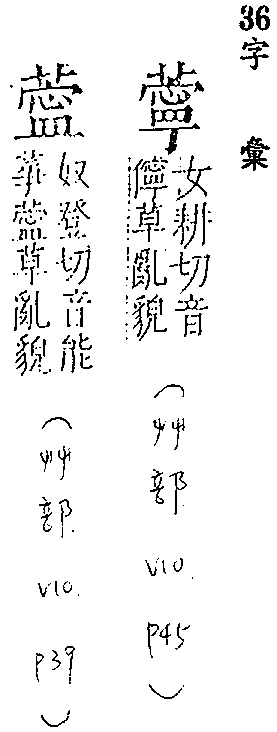 36字彙
薴
女耕切音
儜草亂貌
(艸部 V10. P45)
奴登切音能
草亂貌
(艸部 V10. P39)